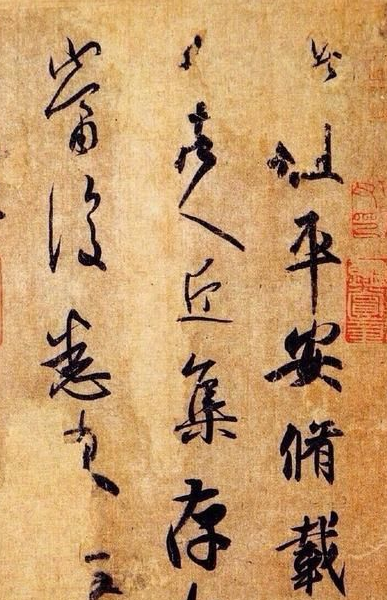 此粗平安脩載
諸人近集存
當復悉來